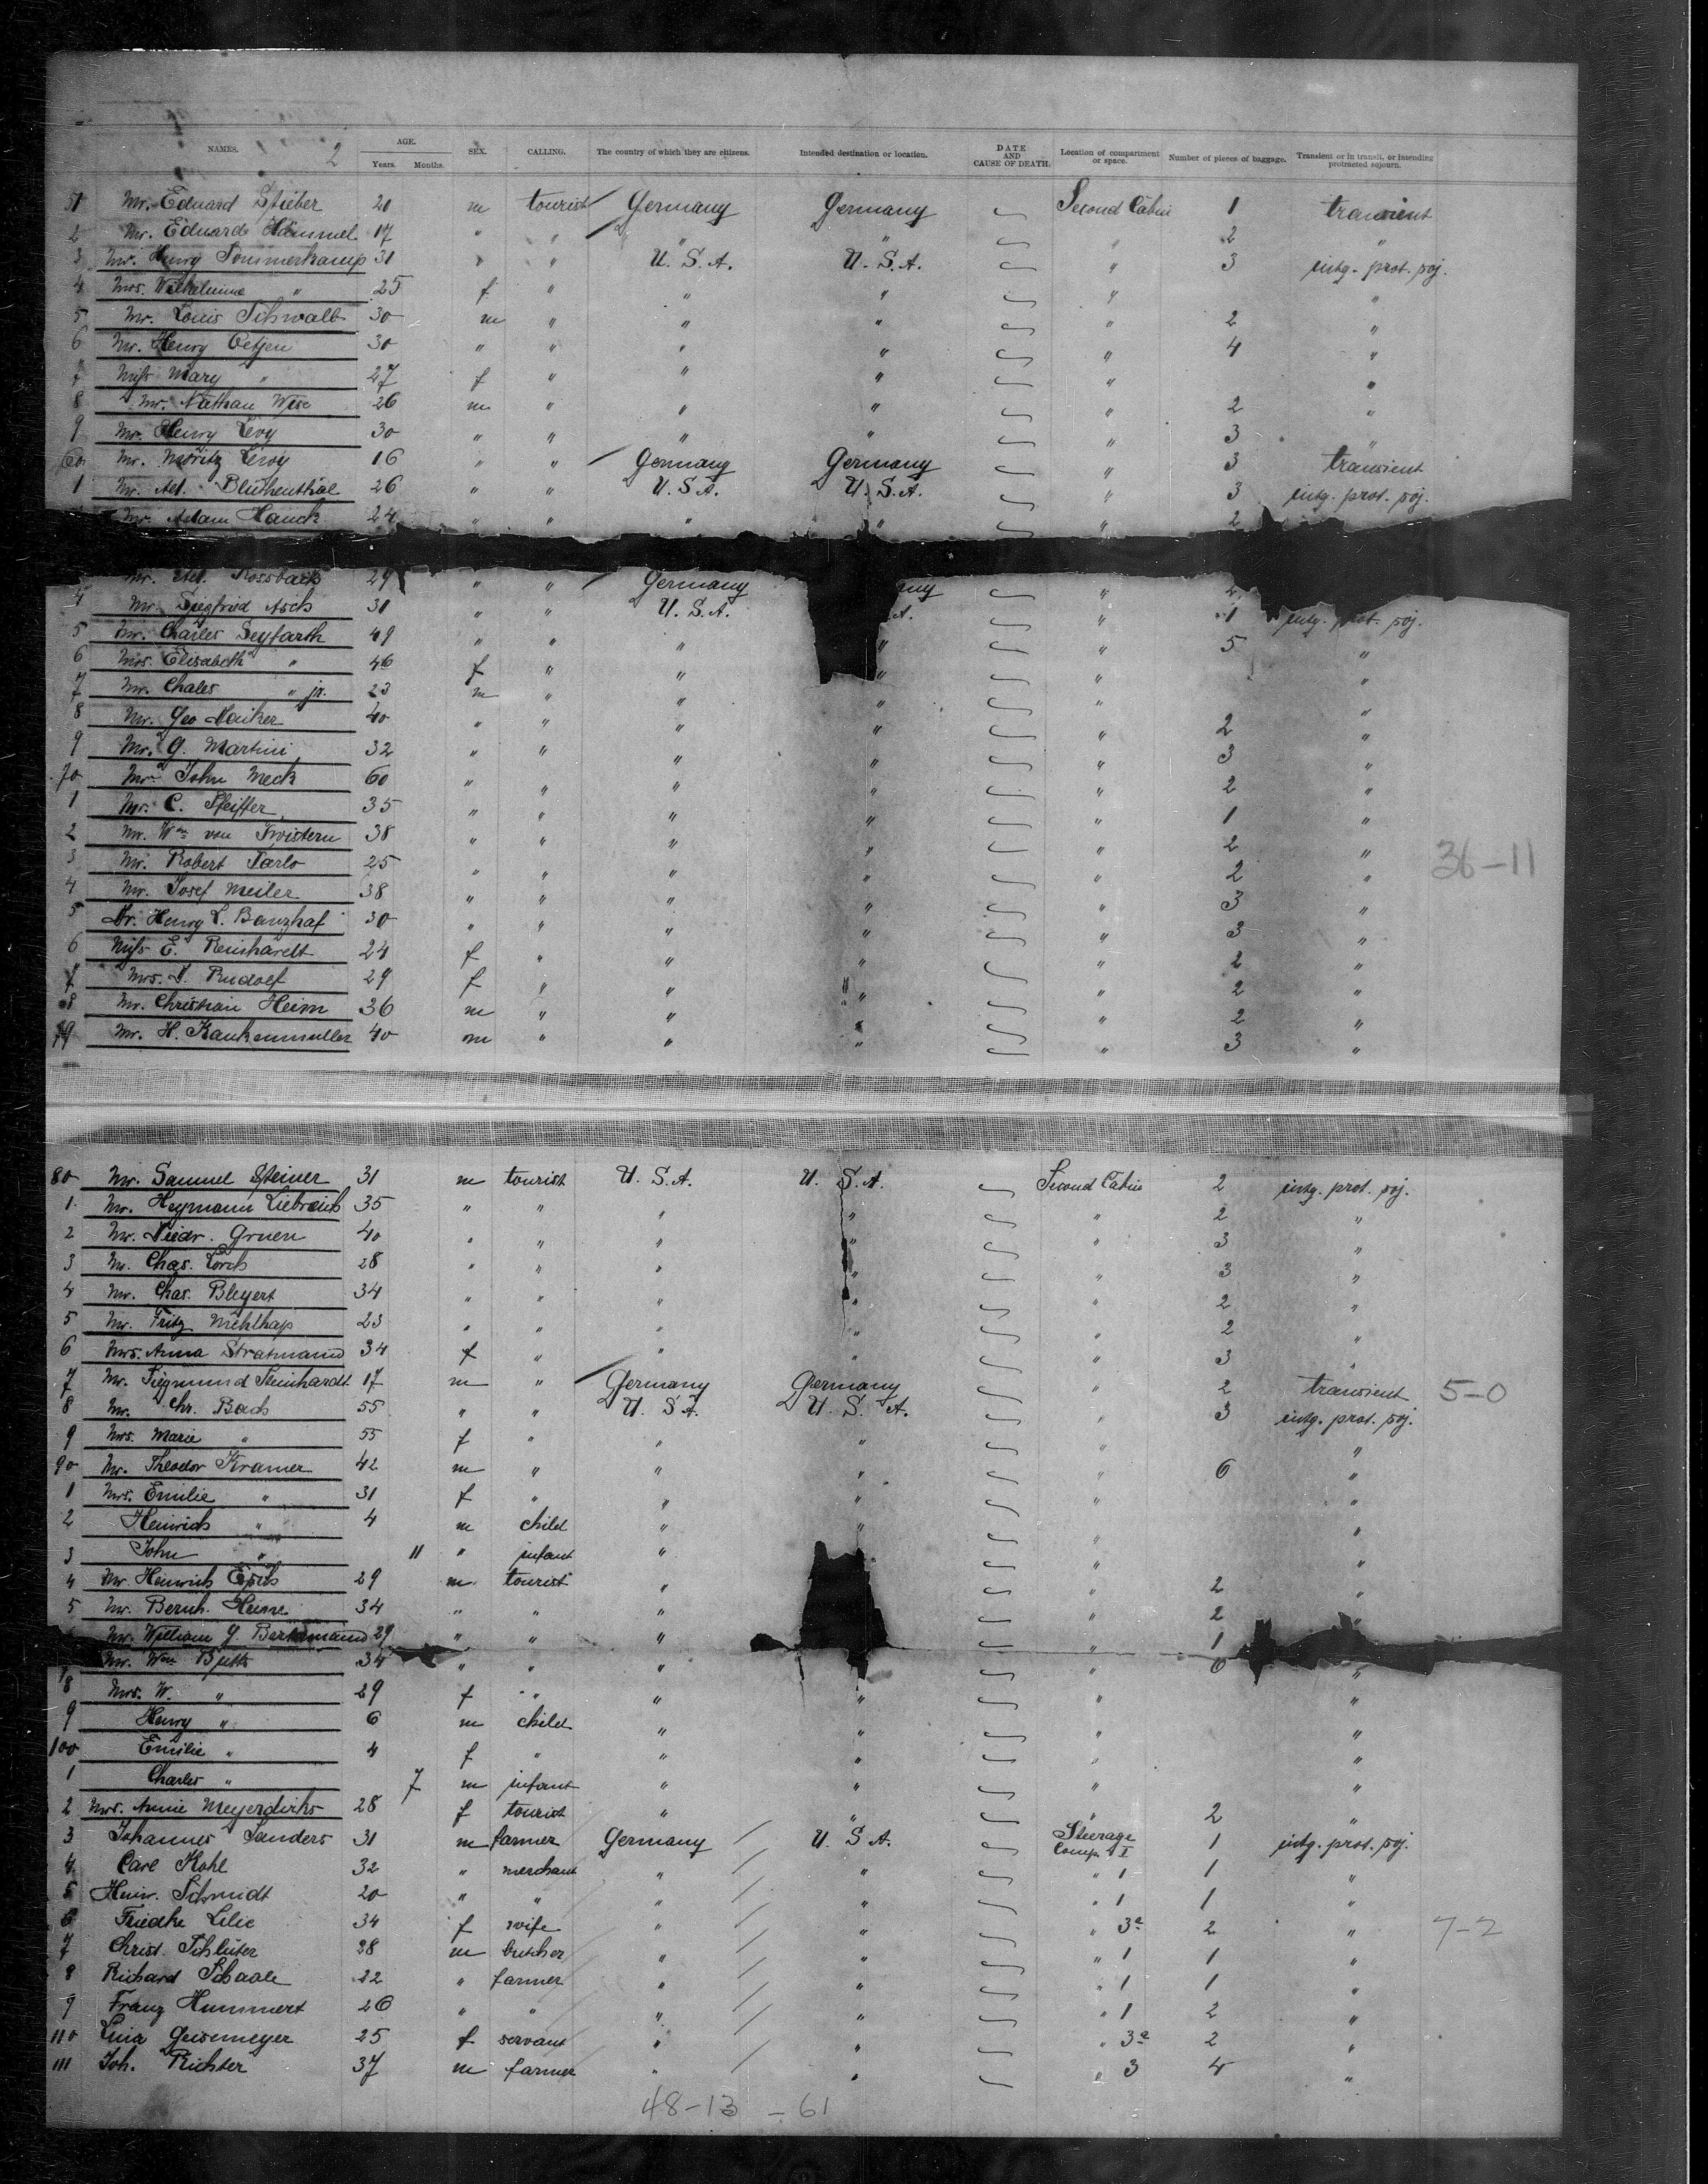 NAMES. 2 AGE. Years. Months. SEX. CALLING. The country of which they are citizens. Intended destination or location. DATE AND CAUSE OF DEATH. Location of compartment or space. Number of pieces of baggage. Transient or in transit, or intending protracted sojourn.
51 Mr. Eduard Stieber 21 m tourist Germany Germany Second Cabin 1 transient
2 Mr. Eduard Hämmel 17 " " " " " 2 "
3 Mr. Henry Sommerkamp 31 " " U.S.A. U.S.A. " 3 intg. prot. soj.
4 Mrs. Wilhelmine " 25 f " " " " "
5 Mr. Louis Schwalb 30 m " " " " 2 "
6 Mr. Henry Oetjen 30 " " " " " 4 "
7 Miss Mary " 27 f " " " " "
8 Mr. Nathan Wise 26 m " " " " 2 "
9 Mr. Henry Levy 30 " " " " " 3 "
60 Mr. Moritz Levy 16 " " Germany Germany " 3 transient
1 Mr. Alb. Blüthenthal 26 " " U.S.A. U.S.A. " 3 intg. prot. soj.
Mr. Adam Hauck 24 " " " " " 2
Mr. Rossbach 29 " " Germany any "
4 Mr. Siegfried Asch 31 " " U.S.A. A. " 1 intg. prot. soj.
5 Mr. Charles Seyfarth 49 " " " " " 5 "
6 Mrs. Elisabeth " 46 f " " " " "
7 Mr. Chales " jr. 23 m " " " " "
8 Mr. Geo Naiker 40 " " " " " 2 "
9 Mr. G. Martini 32 " " " " " 3 "
70 Mr. John Meck 60 " " " " " 2 "
1 Mr. C. Pfeiffer 35 " " " " " 1 "
2 Mr. Wm von Twistern 38 " " " " " 2 "
3 Mr. Robert Tarlo 25 " " " " " 2 " 36-11
4 Mr. Josef Meiler 38 " " " " " 3 "
5 Dr. Henry L. Banzhaf 30 " " " " " 3 "
6 Miss E. Reinhardt 24 f " " " " 2 "
7 Mrs. J. Rudolf 29 f " " " " 2 "
8 Mr. Christian Heim 36 m " " " " 2 "
79 Mr. H. Kankenmuller 40 m " " " " 3 "
80 Mr. Samuel Steiner 31 m tourist U.S.A. U.S.A. Second Cabin 2 intg. prot. soj.
1 Mr. Heymann Liebreich 35 " " " " " 2 "
2 Mr. Friedr. Gruen 40 " " " " " 3 "
3 Mr. Chas. Lorch 28 " " " " " 3 "
4 Mr. Chas. Bleyert 34 " " " " " 2 "
5 Mr. Fritz Mehlhap 23 " " " " " 2 "
6 Mrs. Anna Stratmann 34 f " " " " 3 "
7 Mr. Siegmund Steinhardt 17 m " Germany Germany " 2 transient 5-0
8 Mr. Chr. Bach 55 " " U.S.A. U.S.A. " 3 intg. prot. soj.
9 Mrs. Marie " 55 f " " " " "
90 Mr. Theodor Kramer 42 m " " " " 6 "
1 Mrs. Emilie " 31 f " " " " "
2 Heinrich " 4 m child " " " "
3 John " 11 " infant " " "
4 Mr. Heinrich 29 m tourist " " 2 "
5 Mr. Bernh. Heine 34 " " " " 2 "
Mr. William G. 29 " " " " 1
Mr. Wm Butts 34 " " " " 6 "
98 Mrs. W. " 29 f " " " " "
9 Henry " 6 m child " " " "
100 Emilie " 4 f " " " " "
1 Charles " 7 m infant " " " "
2 Mrs. Annie Meyerdirks 28 f tourist " " " 2 "
3 Johannes Sanders 31 m farmer Germany U.S.A. Steerage Comp. I 1 intg. prot. soj.
4 Carl Kohl 32 " merchant " " " 1 1 "
5 Heinr. Schmidt 20 " " " " " 1 1 "
6 Friedke Lilie 34 f wife " " " 3a 2 " 7-2
7 Christ. Schlüter 28 m butcher " " " 1 1 "
8 Richard Schaale 22 " farmer " " " 1 1 "
9 Franz Hummert 26 " " " " " 1 2 "
110 Lina Geisemeyer 25 f servant " " " 3a 2 "
111 Joh. Richter 37 m farmer " " " 3 4 "
48-13 - 61